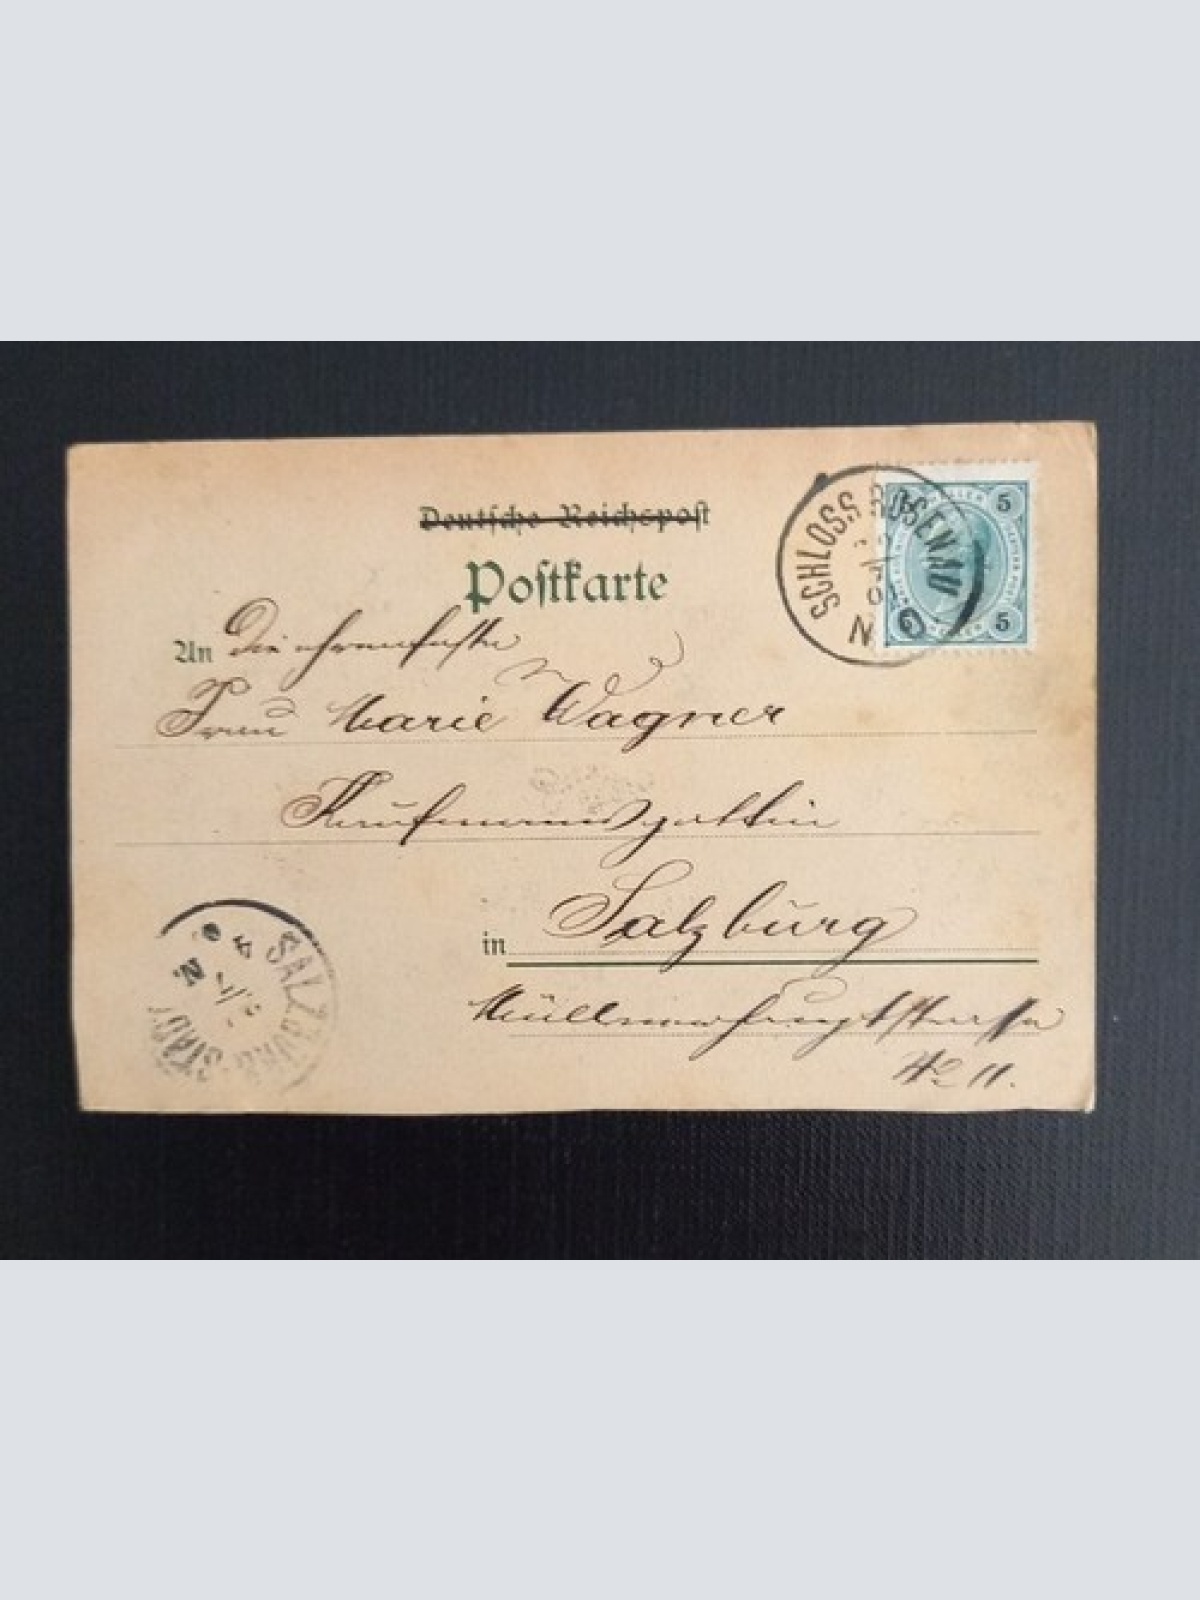 Deutsche Reichspost
Postkarte
SCHLOSS ROSENAU
N. Ö.
5
HELLER
5
An die ehrenfeste
Frau Marie Wagner
Kaufmannsgattin
in Salzburg
Müllnerhauptstrasse
No 11.
SALZBURG STADT
4 N.